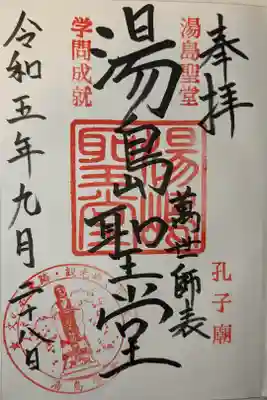 奉拝
湯島聖堂
萬世師表
孔子廟
湯島聖堂
学問成就
湯島聖堂
令和五年九月二十八日